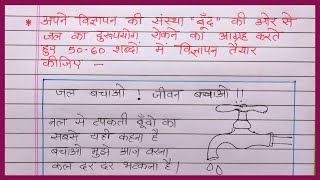 * अपने विज्ञापन की संस्था "बूँद" की ओर से
जल का दुरुपयोग रोकने का आग्रह करते
हुए 50-60 शब्दों में विज्ञापन तैयार
कीजिए -
जल बचाओ ! जीवन बचाओ !!
नल से टपकती बूँदों का
सबसे यही कहना है
बचाओ मुझे आज वरना
कल दर दर भटकना है।